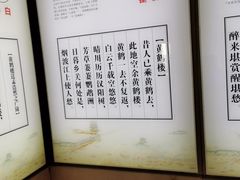 醉来堪赏醒堪愁
【黄鹤楼】
昔人已乘黄鹤去，
此地空余黄鹤楼。
黄鹤一去不复返，
白云千载空悠悠。
晴川历历汉阳树，
芳草萋萋鹦鹉洲。
日暮乡关何处是，
烟波江上使人愁
【黄鹤楼送孟浩然之广陵】